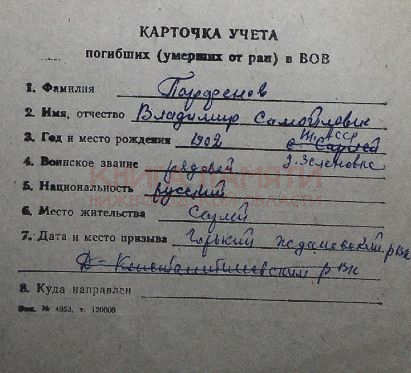 КАРТОЧКА УЧЕТА
погибших (умерших от ран) в ВОВ
1. Фамилия Парфенов
2. Имя, отчество Владимир Самойлович
3. Год и место рождения 1902 с. Сарлей
4. Воинское звание рядовой д. Зеленовка
5. Национальность русский
6. Место жительства Сарлей
7. Дата и место призыва Горький Ждановский рвк
Д-Константиновским рвк
8. Куда направлен
Зак. № 4853, т. 120000
КНИГА ПАМЯТИ